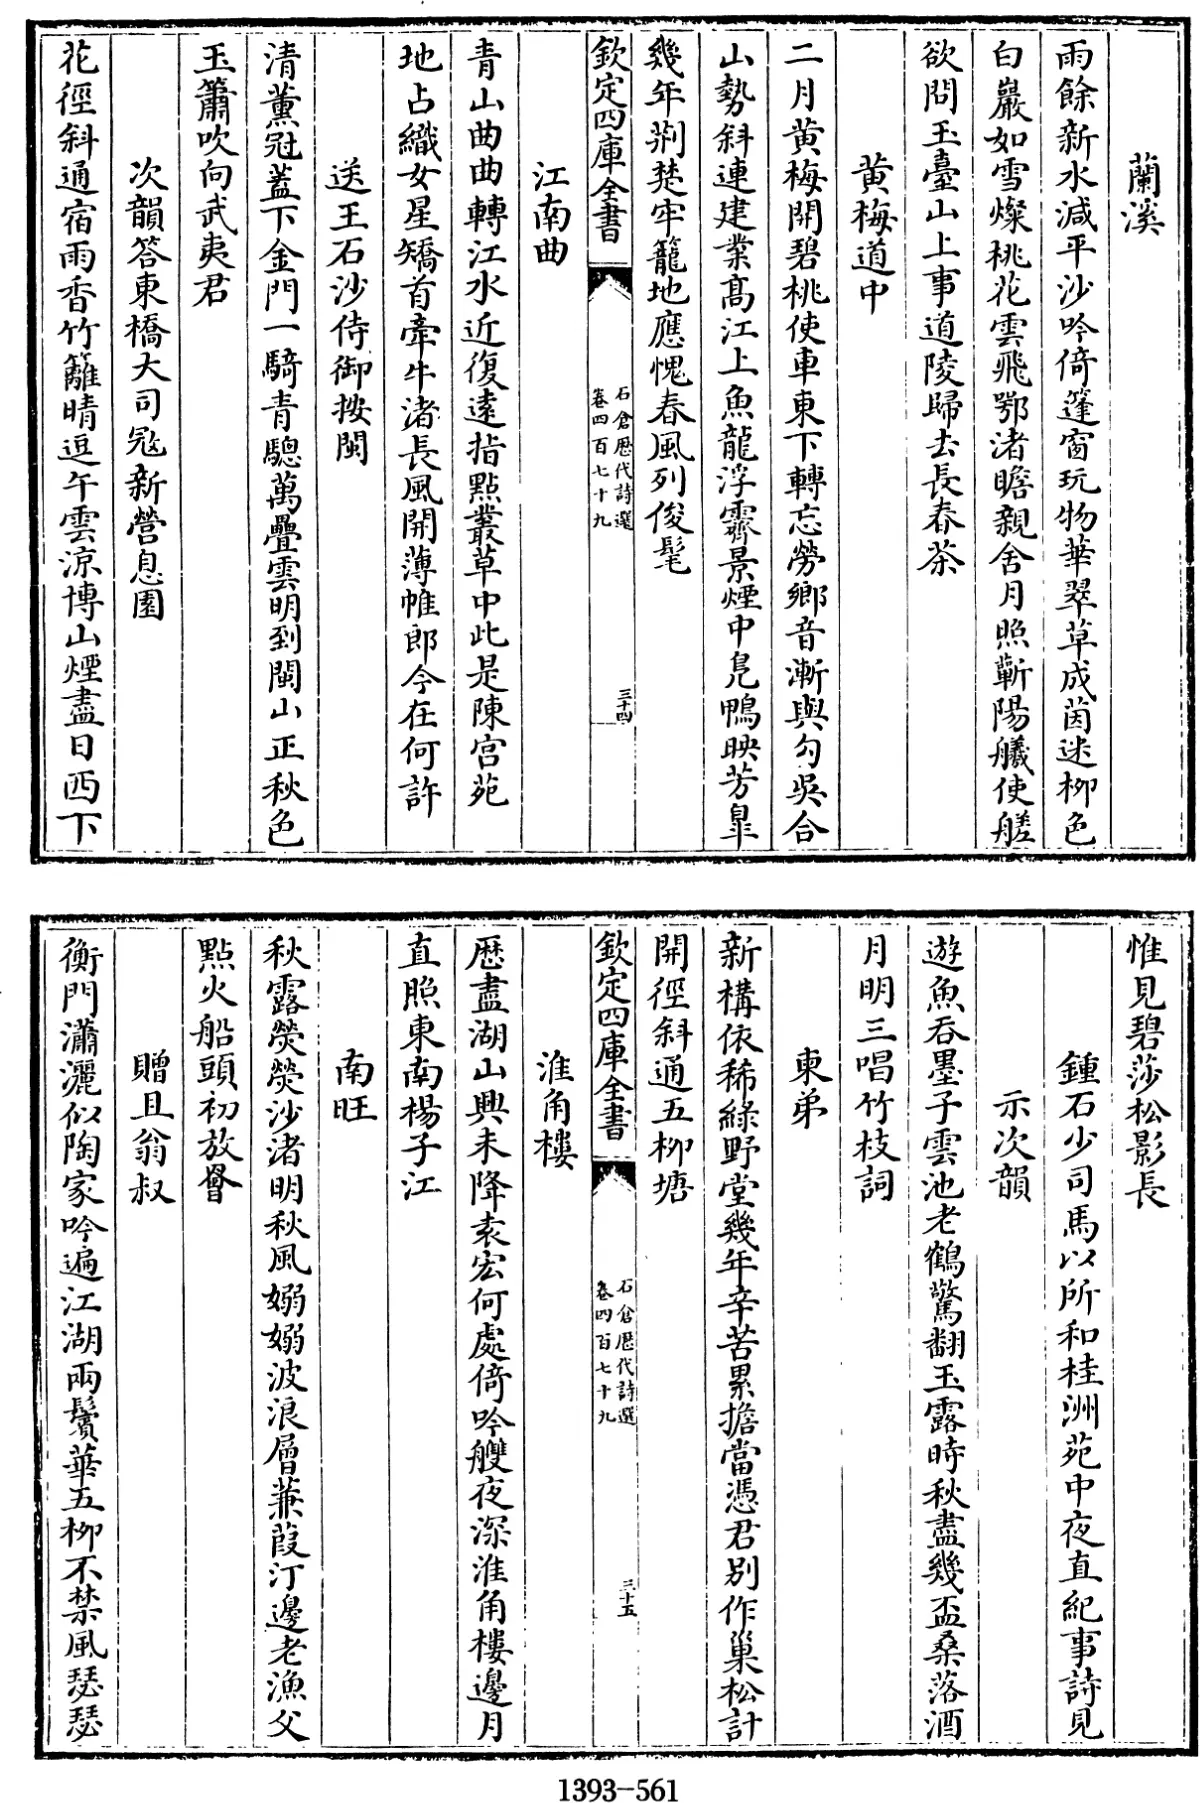 蘭溪
雨餘新水減平沙吟倚篷窗玩物華翠草成茵迷柳色
白巖如雪燦桃花雲飛鄂渚瞻親舍月照蘄陽艤使槎
欲問玉臺山上事道陵歸去長春茶
黄梅道中
二月黄梅開碧桃使車東下轉忘勞鄉音漸與勾吳合
山勢斜連建業髙江上魚龍浮霽景煙中鳬鴨映芳皐
幾年荆楚牢籠地應愧春風列俊髦
欽定四庫全書
石倉歴代詩選
卷四百七十九
三十四
江南曲
青山曲曲轉江水近復遠指點叢草中此是陳宫苑
地占織女星矯首牽牛渚長風開薄帷郎今在何許
送王石沙侍御按閩
清薰冠蓋下金門一騎青驄萬疊雲明到閩山正秋色
玉簫吹向武夷君
次韻答東橋大司冦新營息園
花徑斜通宿雨香竹籬晴逗午雲凉博山煙盡日西下
惟見碧莎松影長
鍾石少司馬以所和桂洲苑中夜直紀事詩見
示次韻
遊魚吞墨子雲池老鶴驚翻玉露時秋盡幾盃桑落酒
月明三唱竹枝詞
柬弟
新構依稀緑野堂幾年辛苦累擔當憑君别作巢松計
開徑斜通五柳塘
欽定四庫全書
石倉歴代詩選
卷四百七十九
三十五
淮角樓
歴盡湖山興未降袁宏何處倚吟艭夜深淮角樓邊月
直照東南楊子江
南旺
秋露熒熒沙渚明秋風嫋嫋波浪層蒹葭汀邊老漁父
點火船頭初放罾
贈且翁叔
衡門瀟灑似陶家吟遍江湖兩鬢華五柳不禁風瑟瑟
1393-561